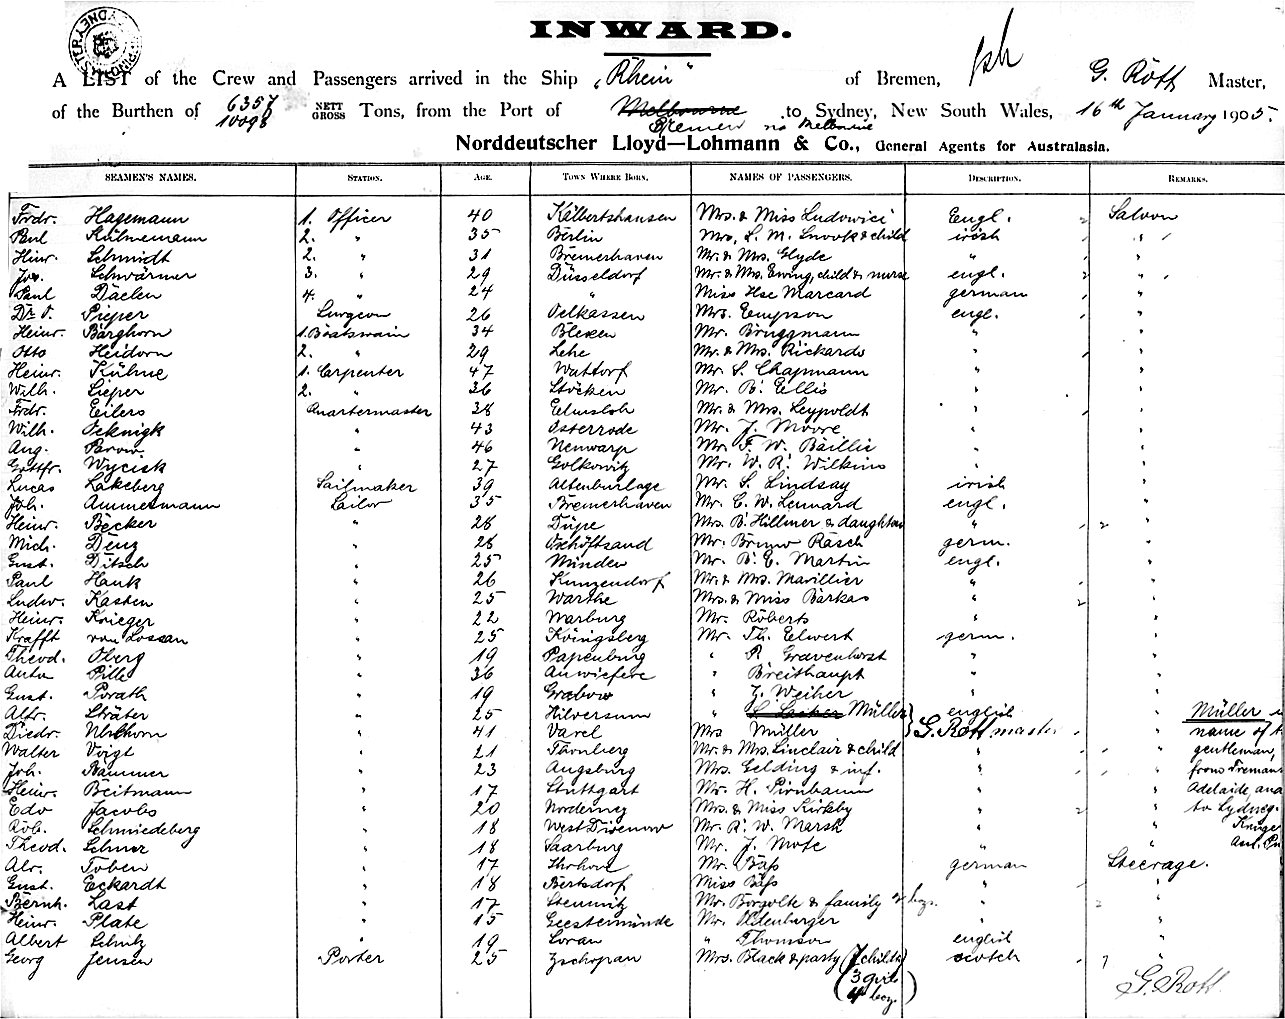 INWARD.
A LIST of the Crew and Passengers arrived in the Ship "Rhein" of Bremen, G. Rott Master,
of the Burthen of 6357 10098 NETT GROSS Tons, from the Port of Melbourne Bremen via Melbourne to Sydney, New South Wales, 16th January 1905.
Norddeutscher Lloyd—Lohmann & Co., General Agents for Australasia.
SEAMEN'S NAMES. STATION. AGE. TOWN WHERE BORN. NAMES OF PASSENGERS. DESCRIPTION. REMARKS.
Frdr. Hagemann 1. Officer 40 Mrs. & Miss Ludowici Engl. Saloon
Paul Kühnemann 2. " 35 Berlin Mrs. L. M. Snook & child irish "
Heinr. Schmidt 2. " 31 Bremerhaven Mr. & Mrs. Clyde " "
Jos. Schwärmer 3. " 29 Düsseldorf Mr. & Mrs. Ewing, child & nurse engl. "
Paul Daelen 4. " 24 " Miss Ilse Marcard german "
Dr. Pieper Surgeon 26 Oelkassen Mrs. Empson engl. "
Heinr. Barghorn 1. Boatswain 34 Blexen Mr. Bruggmann " "
Otto Heidorn 2. " 29 Lehe Mr. & Mrs. Rickards " "
Heinr. Kühne 1. Carpenter 47 Mr. S. Chapmann " "
Wilh. Sieper 2. " 36 Stöcken Mr. B. Ellis " "
Frdr. Eilers Quartermaster 38 Elmsloh Mr. & Mrs. Leypoldt " "
Wilh. " 43 Osterrode Mr. J. Moore " "
Aug. Parow " 46 Neuwarp Mr. F. W. Baillie " "
Gottfr. Wycisk " 27 Golkowitz Mr. W. R. Wilkins " "
Lucas Lakeberg Sailmaker 39 Altenburlage Mr. S. Lindsay irish "
Joh. Ammermann Sailor 35 Bremerhaven Mr. C. W. Lennard engl. "
Heinr. Becker " 28 Düpe Mrs. B. Hillmer & daughter " "
Mich. Denz " 28 Mr. Bruno Räsch germ. "
Gust. Ditsch " 25 Minden Mr. B. E. Martin engl. "
Paul Hauk " 26 Kunzendorf Mr. & Mrs. Mavillier " "
Ludw. Kasten " 25 Warthe Mrs. & Miss Barkas " "
Heinr. Krieger " 22 Warburg Mr. Roberts " "
Krafft von Lossan " 25 Königsberg Mr. Th. Elwert germ. "
Theod. Oberg " 19 Papenburg " P. Gravenhorst " "
Anto Pille " 36 " Breithaupt " "
Gust. Porath " 19 Grabow " Z. Weiher " "
Alfr. Sträter " 25 Hilversum " Müller english " Müller
Diedr. Uhlhorn " 41 Varel Mrs Müller G. Rott master " name of
Walter Voigt " 21 Mr. & Mrs. Sinclair & child " " gentleman,
Joh. Bammer " 23 Augsburg Mrs. Gelding & inf. " " from Freman
Heinr. Beitmann " 17 Stuttgart Mr. H. Pirnbaum " " Adelaide, and
Edo Jacobs " 20 Norderney Mrs. & Miss Kirkby " " to Sydney.
Rob. Schmiedeberg " 18 West Divenow Mr. R. W. Marsh " "
Theod. " 18 Saarburg Mr. J. Mote " "
Alr. Toben " 17 Ihrhove Mr. Bass german Steerage.
Gust. Eckardt " 18 Bertsdorf Miss Bass " "
Bernh. Last " 17 Mr. Borgolte & family " "
Heinr. Plate " 15 Geestemünde Mr. Oldenburger " "
Albert Schulz " 19 " Thomson english "
Georg Jensen Porter 25 Zschopau Mrs. Black & party (7 childr.) scotch "
(3 girls
4 boys)
G. Rott.